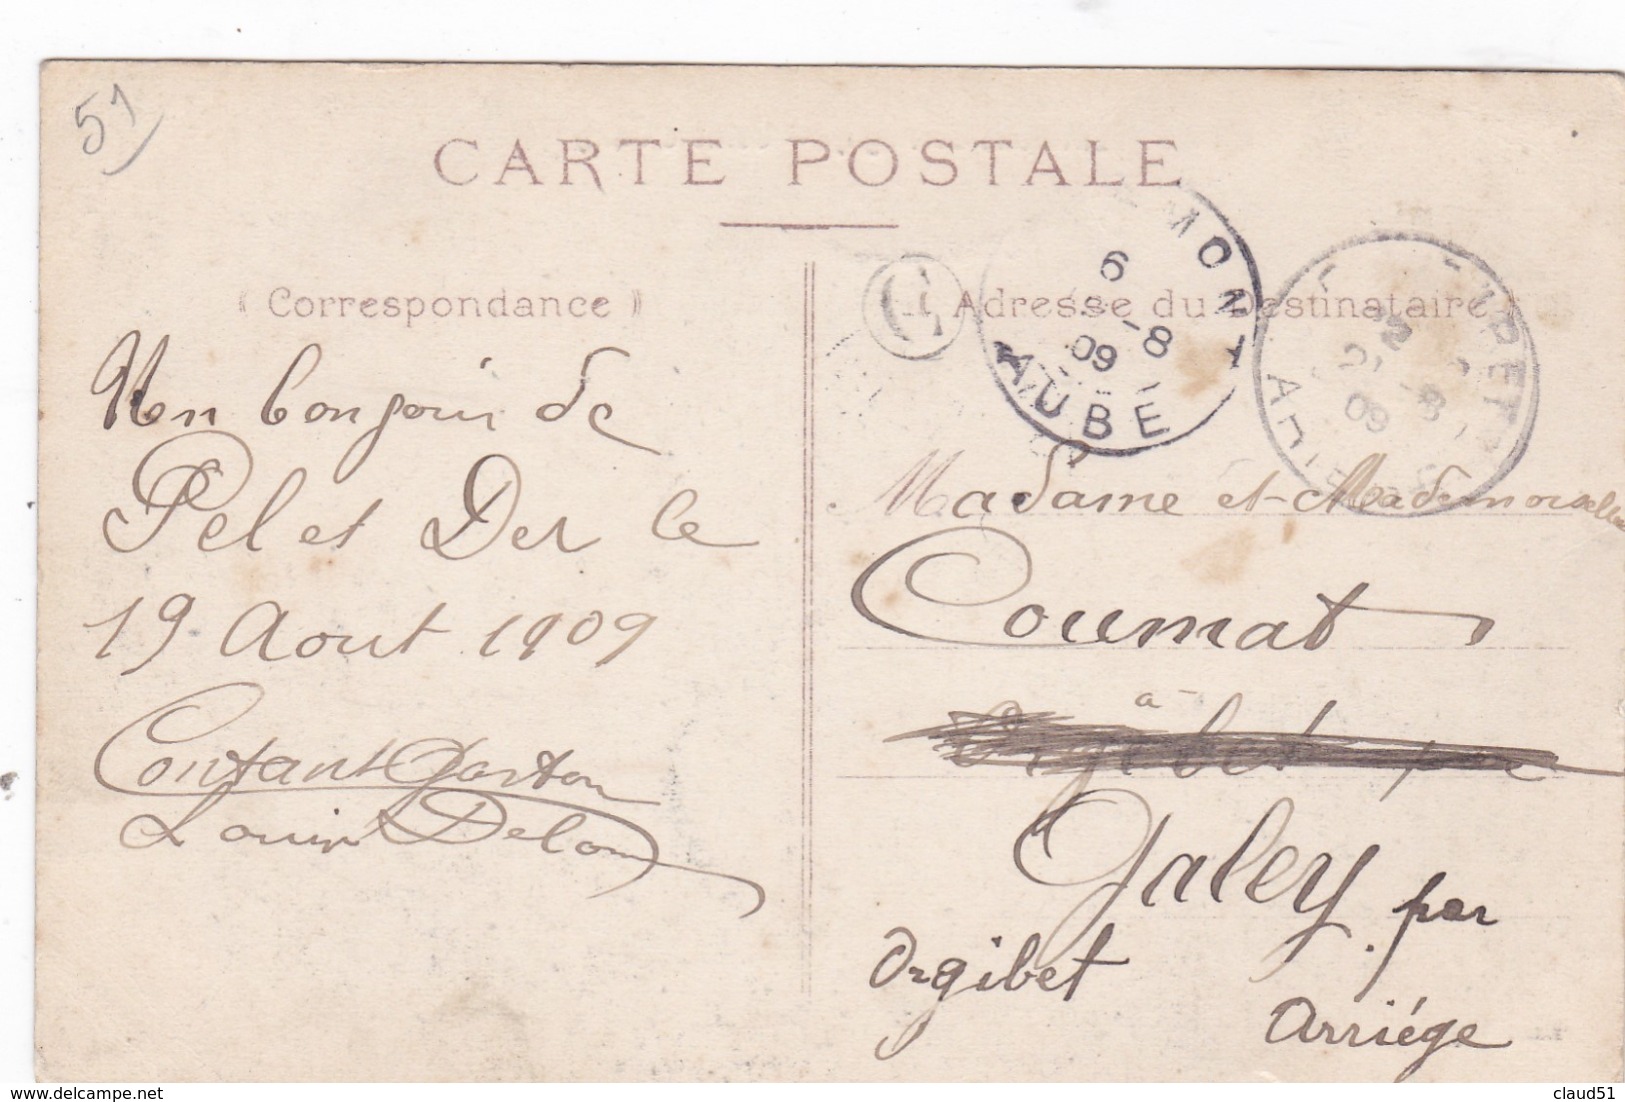 51
CARTE POSTALE
Correspondance
Adresse du Destinataire
MONT
6
-8
09
AUBE
09
-8
Un bonjour de
Pel et Der le
19 Aout 1909
Contant Gaston
Louis Delom
Madame et Mademoiselle
Coumat
à
Orgibet par
Galey par
Orgibet
Arriége
delcampe.net
claud51